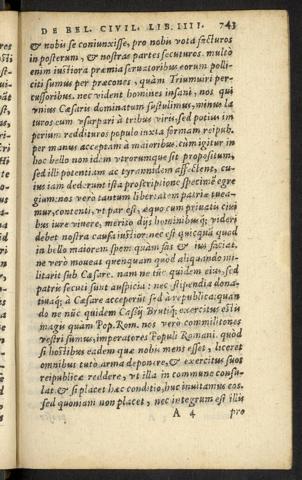 DE BEL. CIVIL. LIB. IIII. 743
& nobis se coniunxisse, pro nobis vota facturos
in posterum, & nostras partes secuturos. multò
enim iustiora præmia seruatoribus eorum polli-
citi sumus per præcones, quàm Triumuiri per-
cussoribus. nec vident homines insani, nos qui
vnius Cæsaris dominatum sustulimus, minus la
turos eum vsurpari à tribus viris, sed potius im
perium reddituros populo iuxta formam reipub.
per manus acceptam à maioribus. cùm igitur in
hoc bello non idem vtrorumque sit propositum,
sed illi potentiam ac tyrannidem affectent, cu-
ius iam dederunt ista proscriptione specimẽ egre
gium: nos verò tantum libertatem patriæ tuea-
mur, contenti, vt par est, æquo cum priuatis ciui
bus iure viuere, meritò dijs hominibusq; videri
debet nostra causa iustior: nec est quicquã quod
in bello maiorem spem quàm fas & ius faciat.
ne verò moueat quenquam quòd aliquando mi-
litarit sub Cæsare. nam ne tũc quidem eius, sed
patrij secuti sunt auspicia: nec stipendia dona-
tiuaq; à Cæsare acceperũt sed à republica: quan
do ne nũc quidem Cassij Brutiq; exercitus estis
magis quàm Pop. Rom. nos verò commilitones
vestri sumus, imperatores Populi Romani. quòd
si hostibus eadem quæ nobis mens esset, liceret
omnibus tutò arma deponere, & exercitus suos
reipublicæ reddere, vt illa in commune consu-
lat: & si placet hæc conditio, huc inuitamus eos.
sed quoniam non placet, nec integrum est illis
A 4 pro